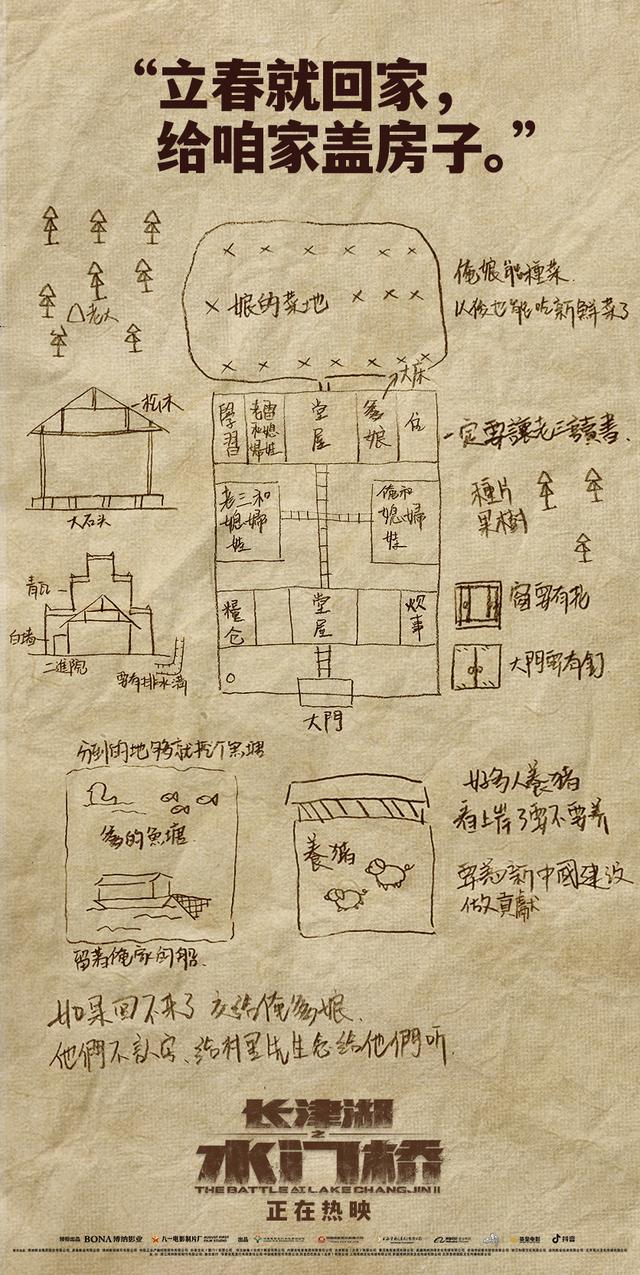 “立春就回家，
给咱家盖房子。”
俺娘能種菜
以後也能吃新鮮菜了
娘的菜地
老大
大床
松木
大石头
學習
老雷和媳婦娃
堂屋
爹娘
一定要讓老三讀書.
種片
果樹
老三和
媳婦
娃
俺和
媳婦
娃
青瓦
白墙
二進院
要有排水溝
糧仓
堂屋
炊事
窗要有花
大門要有釘
大門
分到的地够就挖个魚塘
爹的魚塘
養猪
好多人養猪
看上岸了要不要养
要為新中國建设
做貢獻
留着俺家的船.
如果回不来了 交给俺爹娘.
他們不認字、给村里先生念给他們听.
长津湖
之
水门桥
THE BATTLE AT LAKE CHANGJIN II
正在热映
博纳出品
BONA 博纳影业
八一电影制片厂
出品
抖音